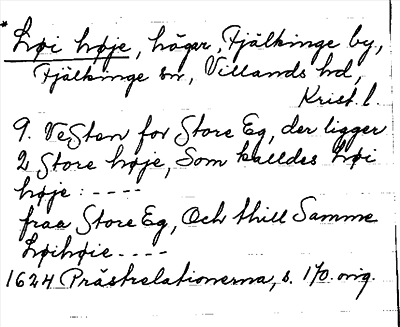 * Høi høje, högar, Fjälkinge by,
Fjälkinge sn, Villands hd,
Krist. l.
9. VeSten for Store Eg, der ligger
2 Store høje, Som kalldes Høi
høje : ----
fraa Store Eg, Och thill Samme
Høihøie ----
1624 Prästrelationerna, s. 170. orig.